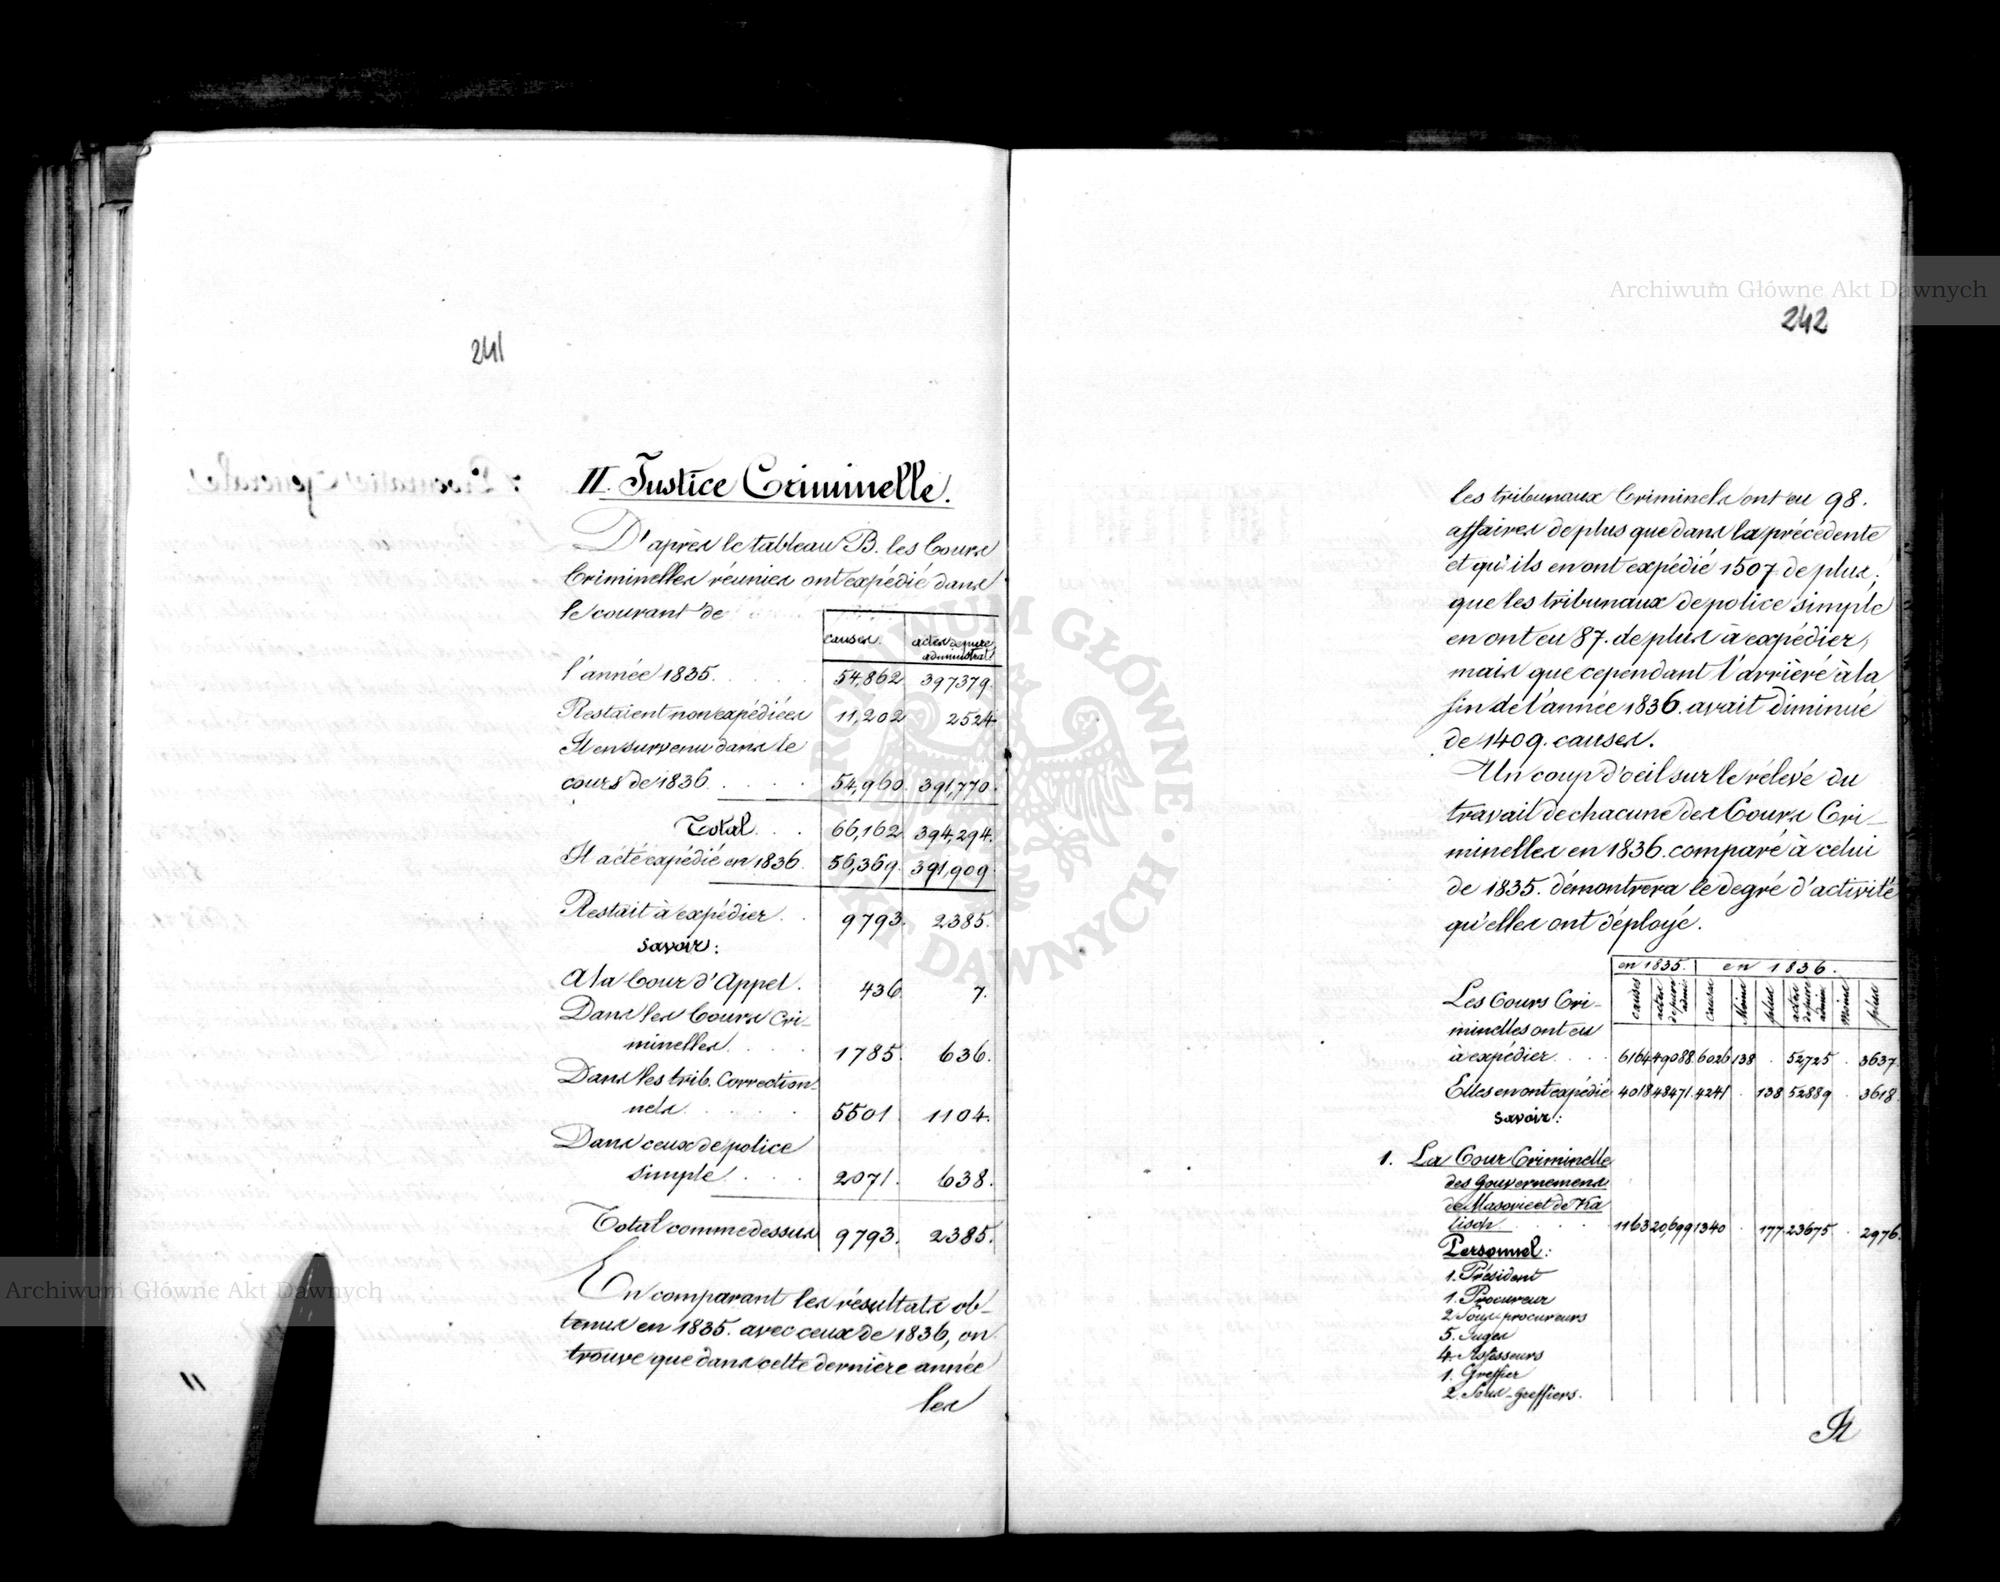 241
II. Justice Criminelle.
D'après le tableau B. les Cours
Criminelles réunies ont expédié dans
le courant de
causes. actes de pure administrat.
l'année 1835. . . . . 54,862. 397379.
Restaient non expédiées 11,202 2524.
Il en survenu dans le
cours de 1836. . . . . 54,960. 391,770.
Total. . . 66,162. 394,294.
Il a été expédié en 1836. 56,369. 391,909.
Restait à expédier . . 9793. 2385.
savoir:
A la Cour d'Appel. 436. 7.
Dans les Cours Cri-
minelles. . . . 1785. 636.
Dans les trib. Correction-
nels. . . . . 5501. 1104.
Dans ceux de police
simple. . . . 2071. 638.
Total comme dessus 9793. 2385.
En comparant les résultats ob-
tenus en 1835. avec ceux de 1836, on
trouve que dans cette dernière année
les
242
les tribunaux Criminels ont eu 98.
affaires de plus que dans la précédente
et qu'ils en ont expédié 1507 de plus;
que les tribunaux de police simple
en ont eu 87. de plus à expédier,
mais que cependant l'arriéré à la
fin de l'année 1836. avait diminué
de 1409. causes.
Un coup d'oeil sur le rélevé du
travail de chacune des Cours Cri-
minelles en 1836. comparé à celui
de 1835. démontrera le degré d'activité
qu'elles ont déployé.
en 1835. en 1836.
causes actes de pure admi: causes Moins plus actes de pure admin: Moins plus
Les Cours Cri-
minelles ont eu
à expédier. . . . 6164 49088 6026 138 . 52,725 . 3637.
Elles en ont expédié 4018 48471. 4241 . 138 52889 . 3618.
savoir:
1. La Cour Criminelle
des Gouvernemens
de Masovie et de Ka
lisch . . . . 1163 20,699 1340 . 177 23675 . 2976.
Personnel:
1. Président
1. Procureur
2. Sous procureurs
5. Juges
4. Assesseurs
1. Greffier
2. Sous-greffiers.
Il
Archiwum Główne Akt Dawnych
Archiwum Główne Akt Dawnych
ARCHIWUM GŁÓWNE AKT DAWNYCH